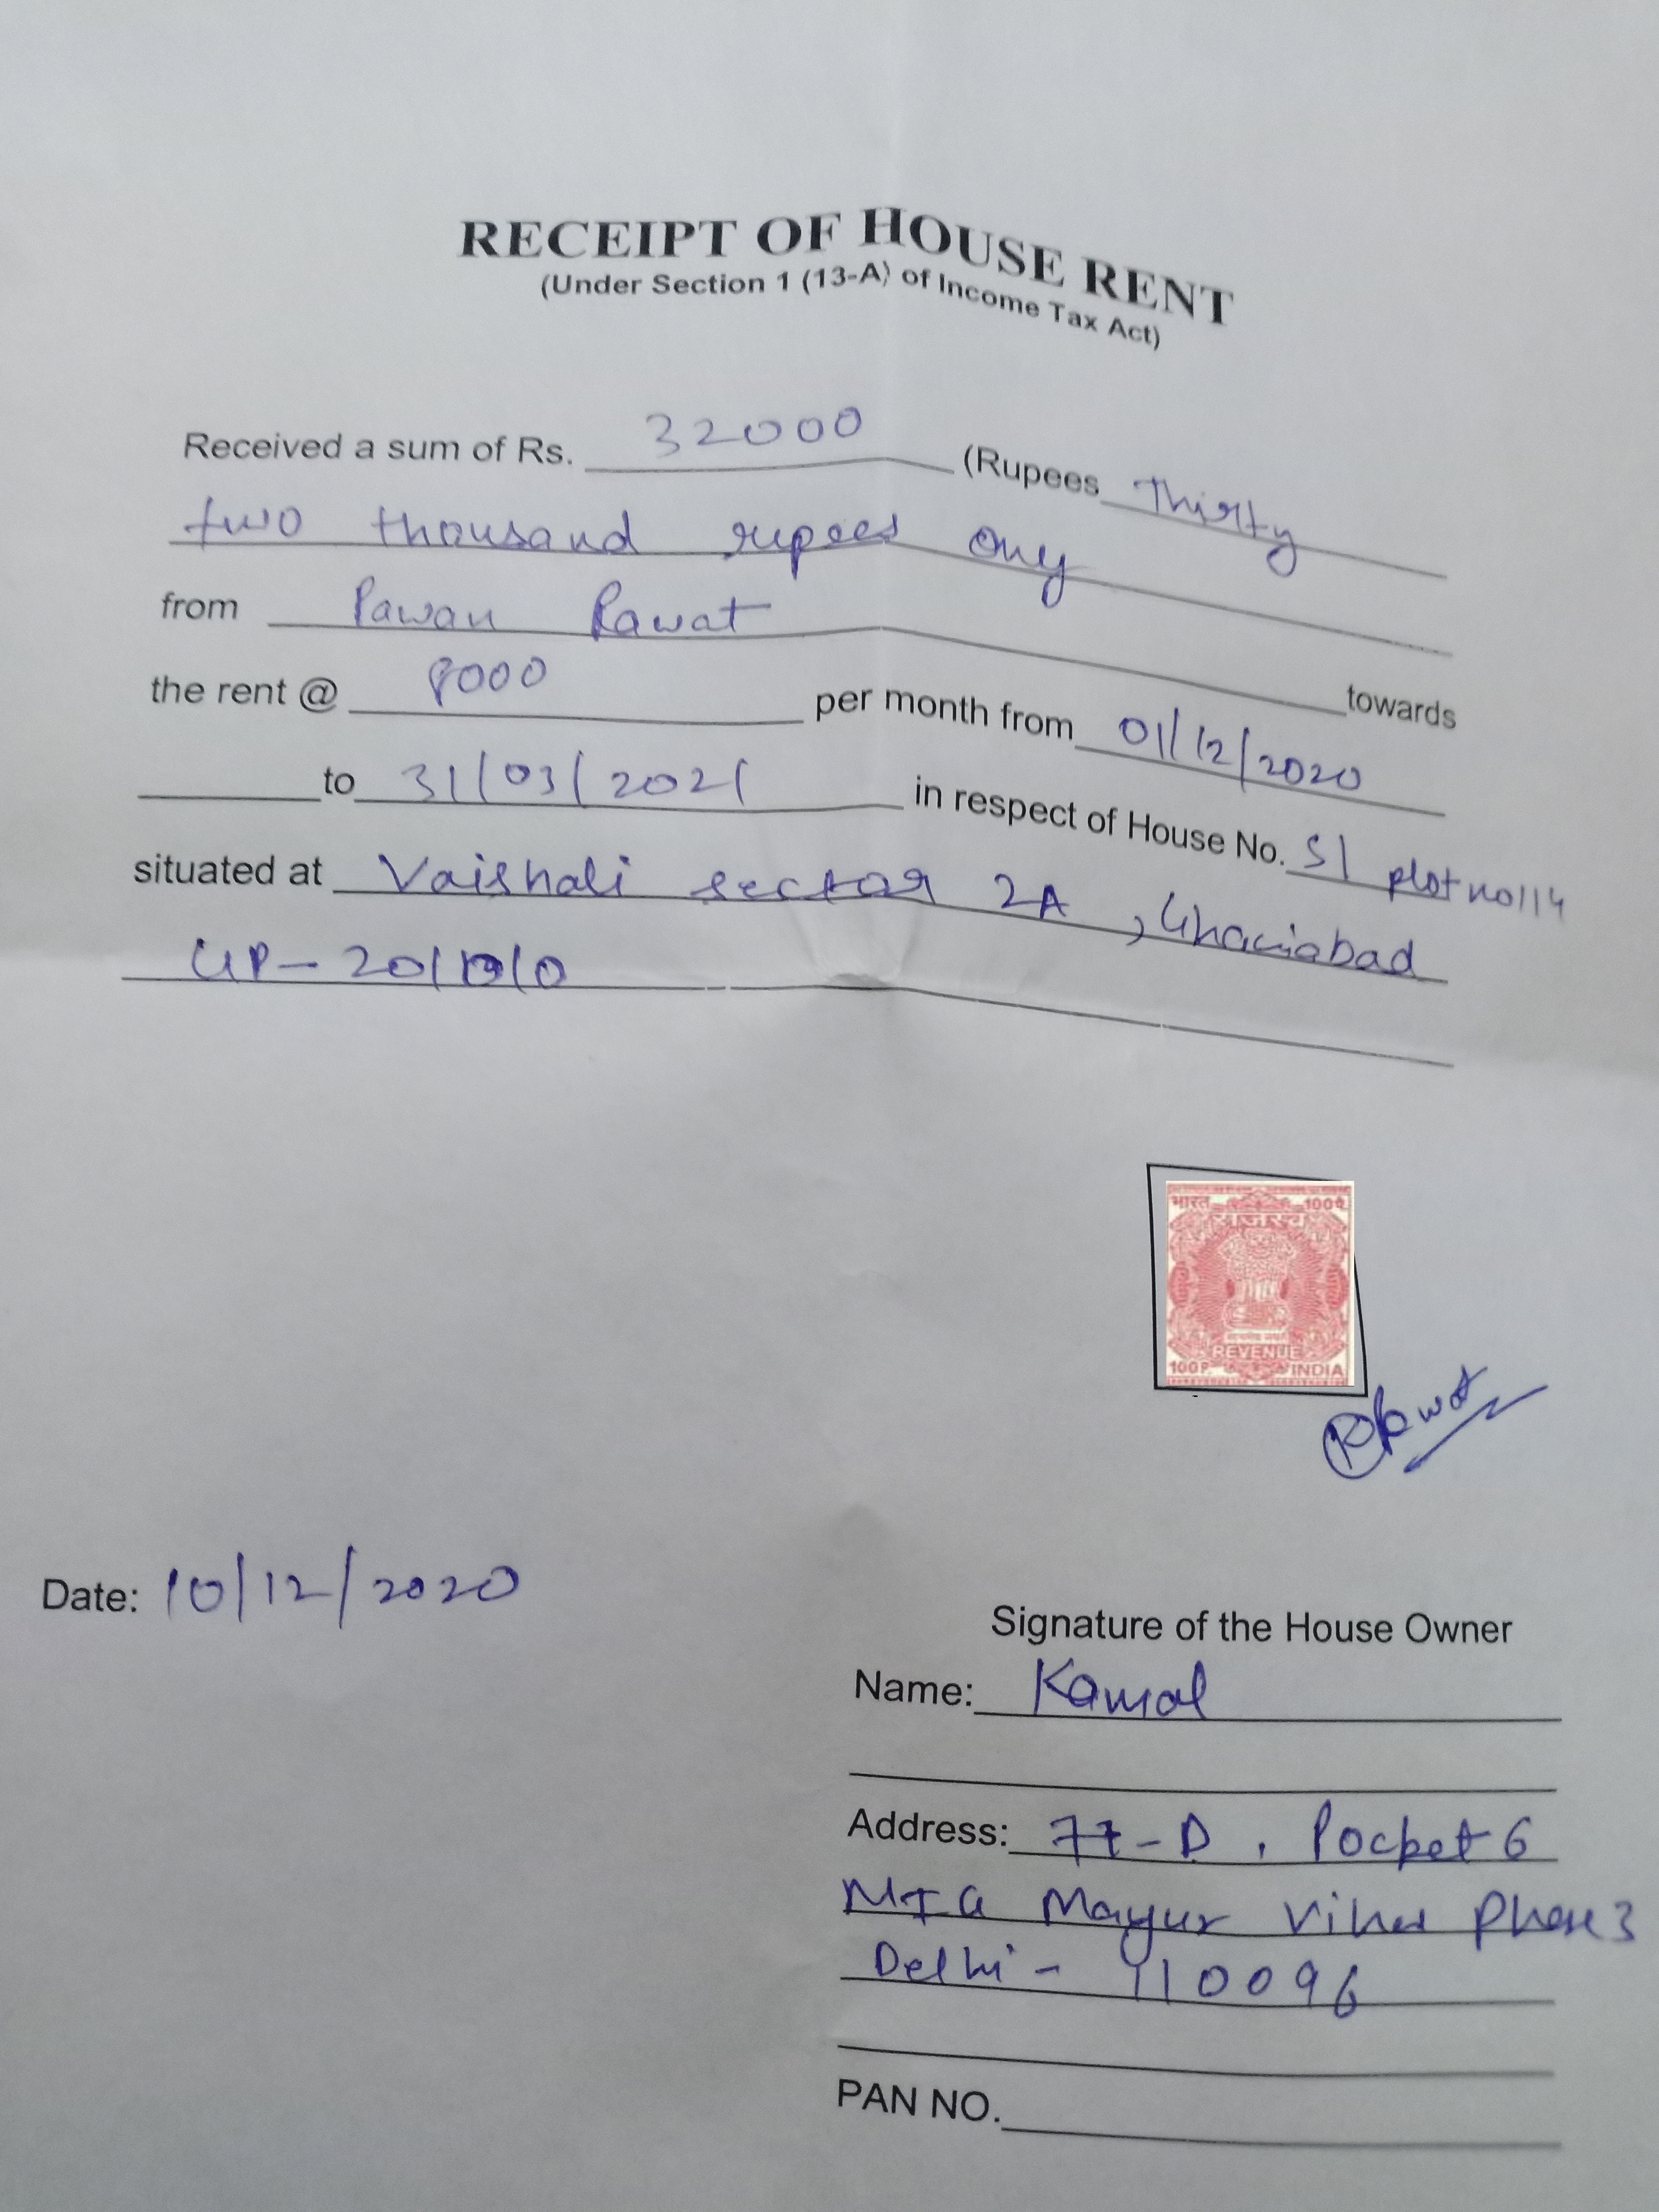 RECEIPT OF HOUSE RENT
(Under Section 1 (13-A) of Income Tax Act)
Received a sum of Rs. 32000 (Rupees Thirty
two thousand rupees ony
from Pawan Rawat
towards
the rent @ 8000 per month from 01/12/2020
to 31/03/2021 in respect of House No. S1 plot no 114
situated at Vaishali sector 2A, Ghaziabad
UP - 201010
भारत 100प
राजस्व
REVENUE
100P. INDIA
Rawat
Date: 10/12/2020
Signature of the House Owner
Name: Kamal
Address: 77-D, Pocket 6
MIG Mayur Vihar Phase 3
Delhi - 110096
PAN NO.